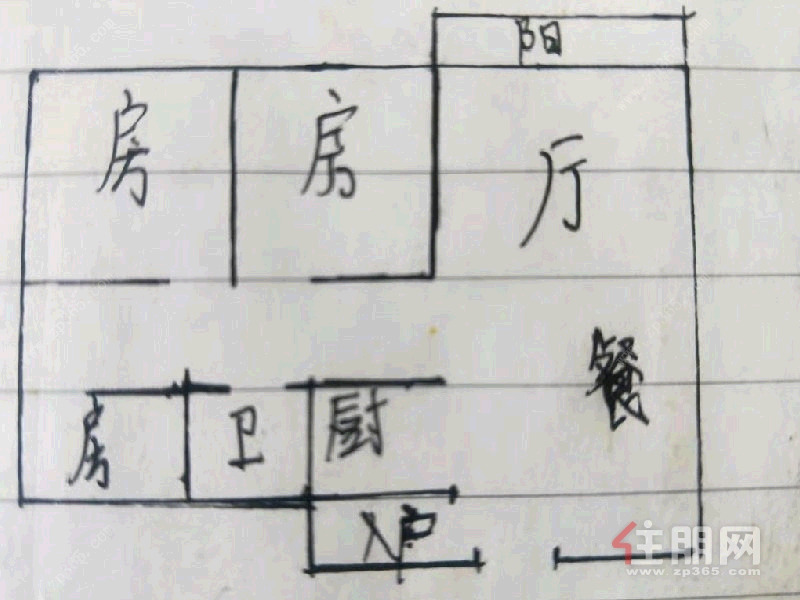 阳
房 房 厅
餐
房 卫 厨
入户
住朋网
www.zp365.com